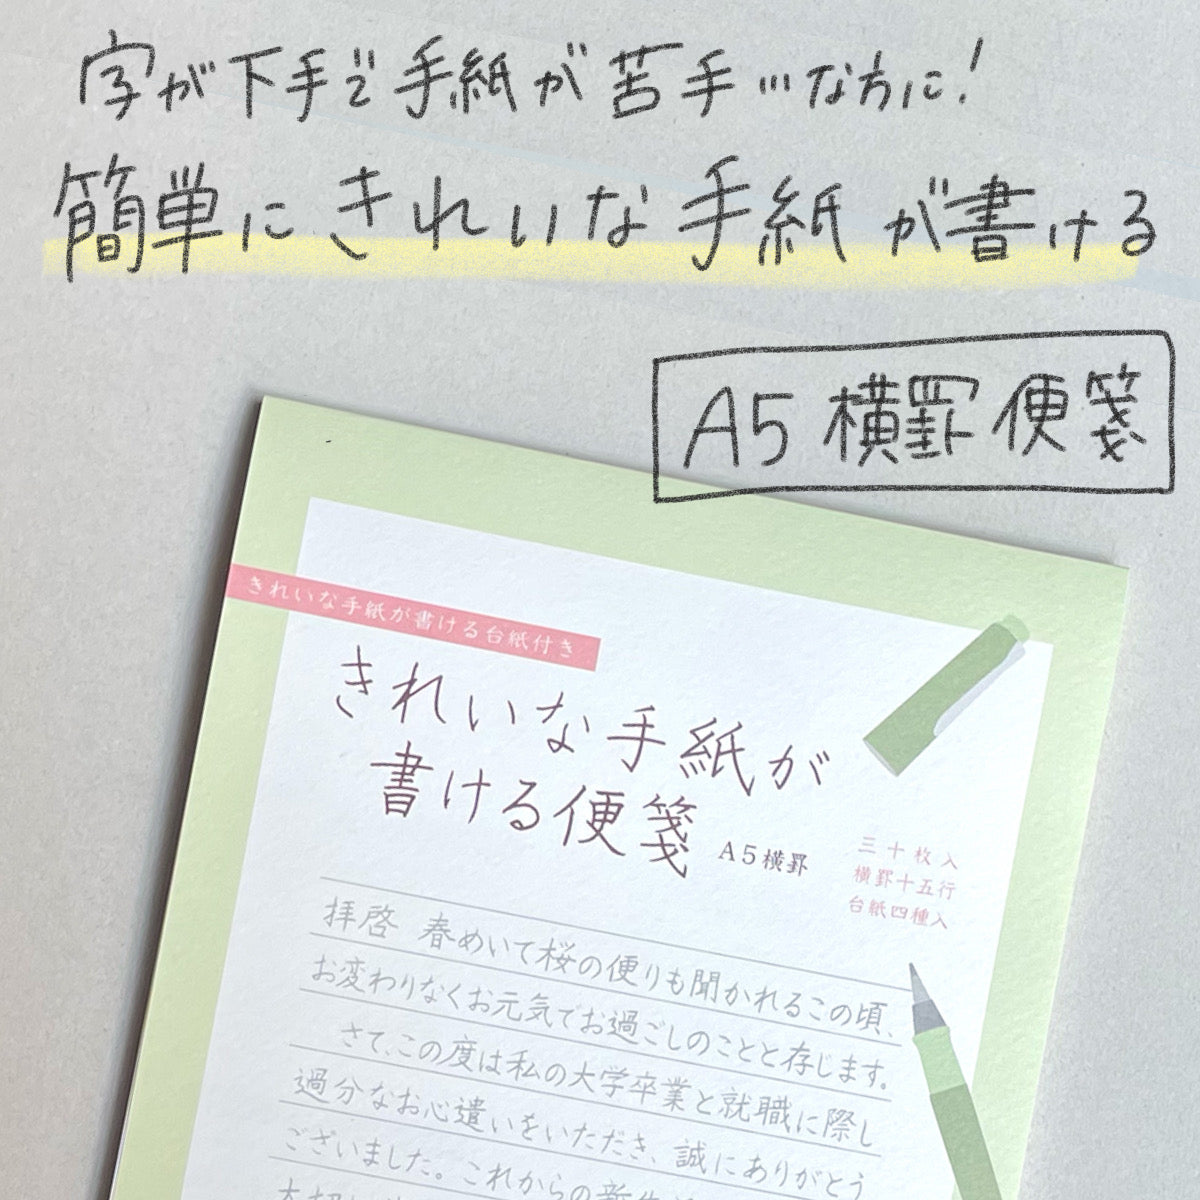 字が下手で手紙が苦手…な方に!
簡単にきれいな手紙が書ける
A5 横罫 便箋
きれいな手紙が書ける台紙付き
きれいな手紙が
書ける便箋
A5横罫
三十枚入
横罫十五行
台紙四種入
拝啓 春めいて桜の便りも聞かれるこの頃、
お変わりなくお元気でお過ごしのことと存じます。
さて、この度は私の大学卒業と就職に際し
過分なお心遣いをいただき、誠にありがとう
ございました。これからの新生